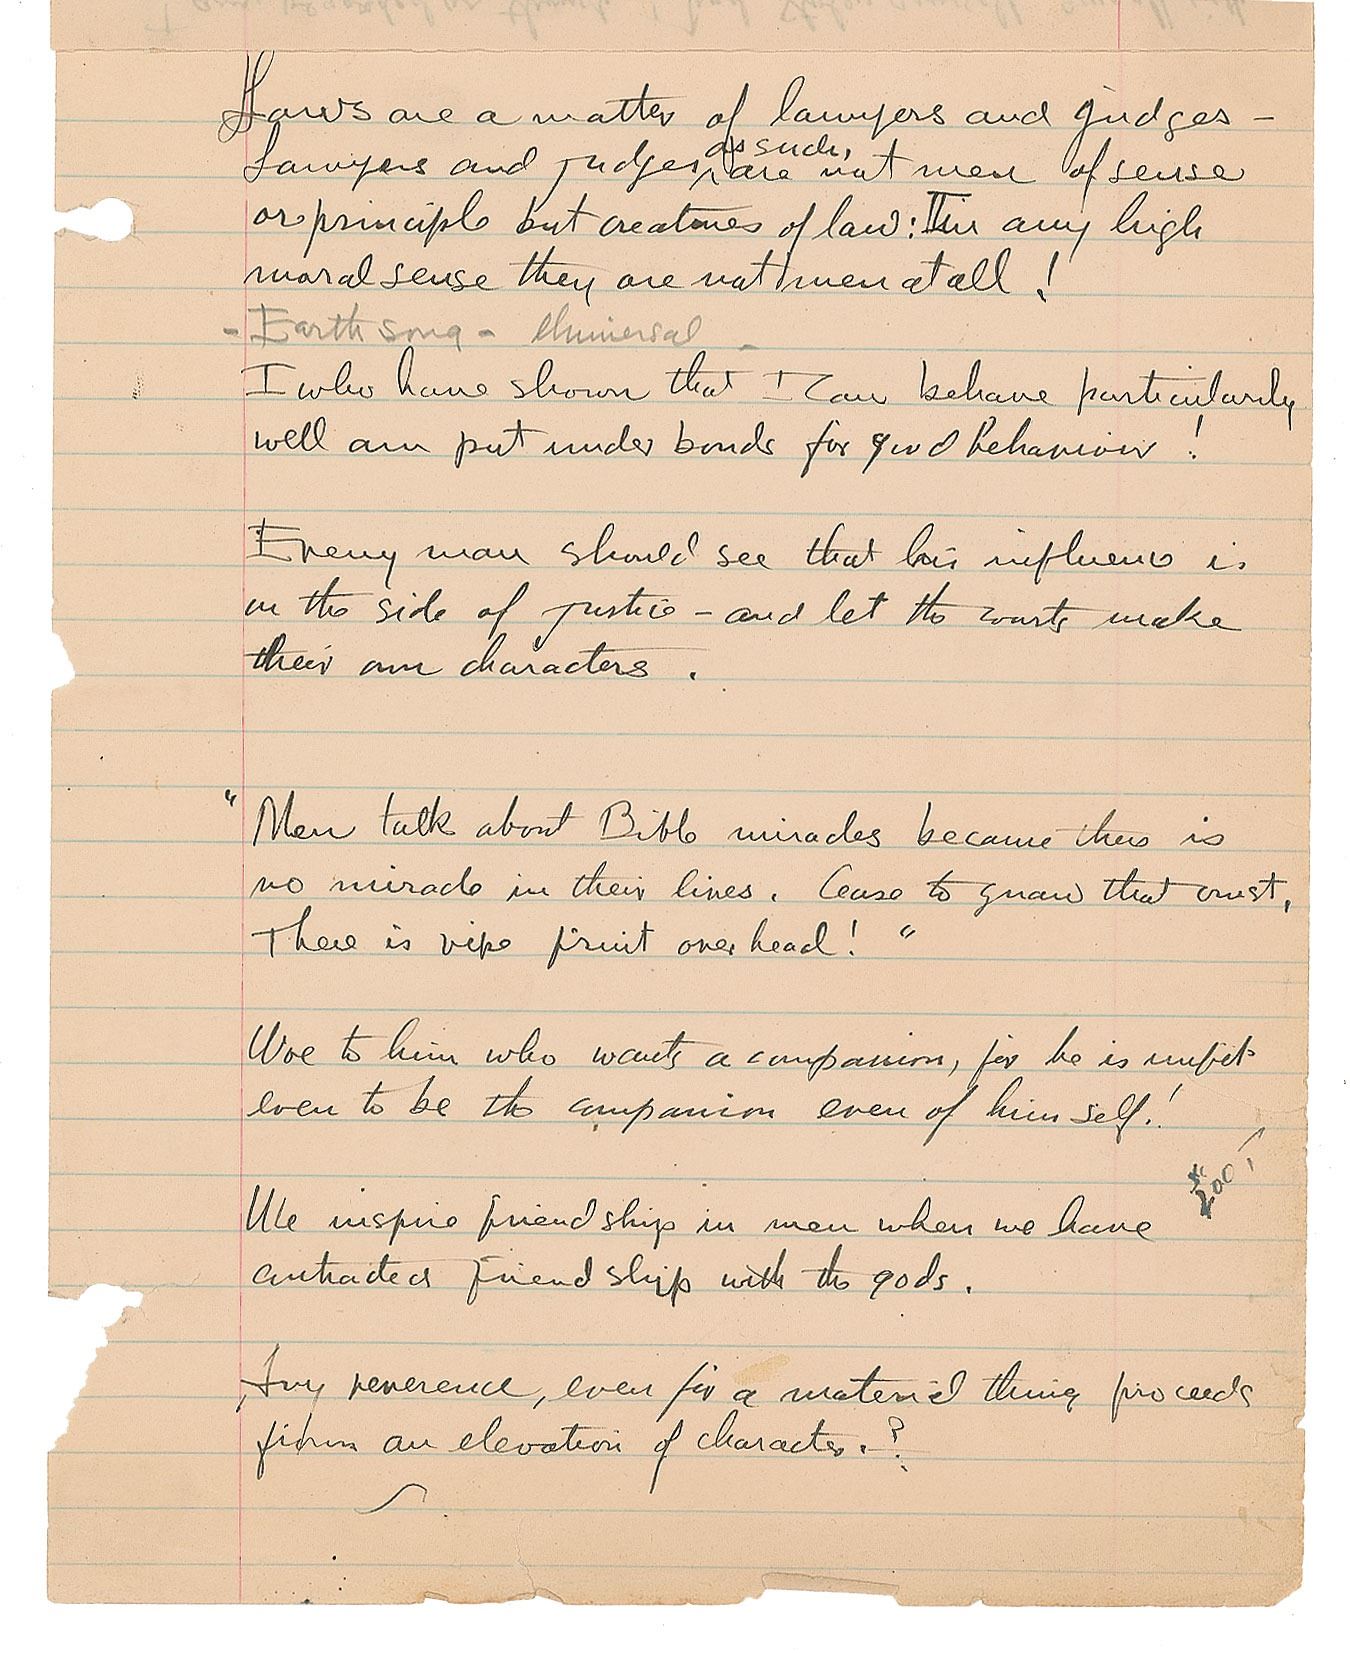 Laws are a matter of lawyers and judges –
as such,
Lawyers and judges, are not men of sense
or principle but creatures of law: In any high
moral sense they are not men at all!
- Earth song - Universal -
I who have shown that I can behave particularly
well am put under bonds for good behaviour!
Every man should see that his influence is
on the side of justice – and let the courts make
their own characters.
"Men talk about Bible miracles because there is
no miracle in their lives. Cease to gnaw that crust,
There is ripe fruit over head!"
Woe to him who wants a companion, for he is unfit
even to be the companion even of himself!
$200!
We inspire friendship in men when we have
contracted friendship with the gods.
Any reverence, even for a material thing proceeds
from an elevation of character.?